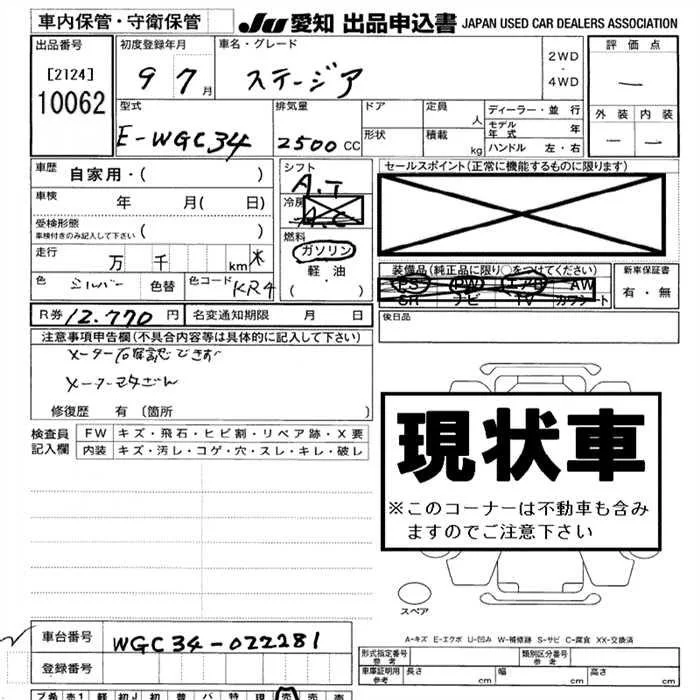 車内保管・守衛保管
JU 愛知 出品申込書 JAPAN USED CAR DEALERS ASSOCIATION
出品番号
[2124]
10062
初度登録年月
9 7月
車名・グレード
ステージア
2WD
・
4WD
評価点
—
外装 内装
— —
型式
E-WGC34
排気量
2500 CC
ドア
形状
定員
人
積載
kg
ディーラー・並 行
モデル年式 年
ハンドル 左・右
車歴 自家用・( )
車検 年 月( 日)
受検形態
車検付きのみ記入して下さい ( )
走行 万 千 km *
色 シルバー 色替 色コード KR4
シフト
A.T
冷房
A.C
燃料
ガソリン
軽油
・( )
セールスポイント(正常に機能するものに限ります)
装備品(純正品に限り○をつけてください)
PS PW エアB AW
SR ナビ TV カワシート
新車保証書
有・無
R券 12.770 円 名変通知期限 月 日
後日品
注意事項申告欄(不具合内容等は具体的に記入して下さい)
修復歴 有 〔箇所 〕
検査員
記入欄
FW キズ・飛石・ヒビ割・リペア跡・X要
内装 キズ・汚レ・コゲ・穴・スレ・キレ・破レ
現状車
※このコーナーは不動車も含み
ますのでご注意下さい
スペア
A-キズ E-エクボ U-凹み W-補修跡 S-サビ C-腐食 XX-交換済
車台番号 WGC34-022281
登録番号
形式指定番号
参考
類別区分番号
参考
車庫証明用
参考
長さ cm 幅 cm 高さ cm